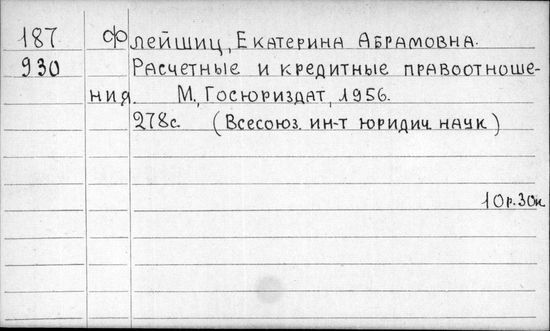 187 Флейшиц, Екатерина Абрамовна.
930 Расчетные и кредитные правоотноше-
ния. М., Госюриздат, 1956.
278с. (Всесоюз. ин-т юридич. наук)
10р.30к